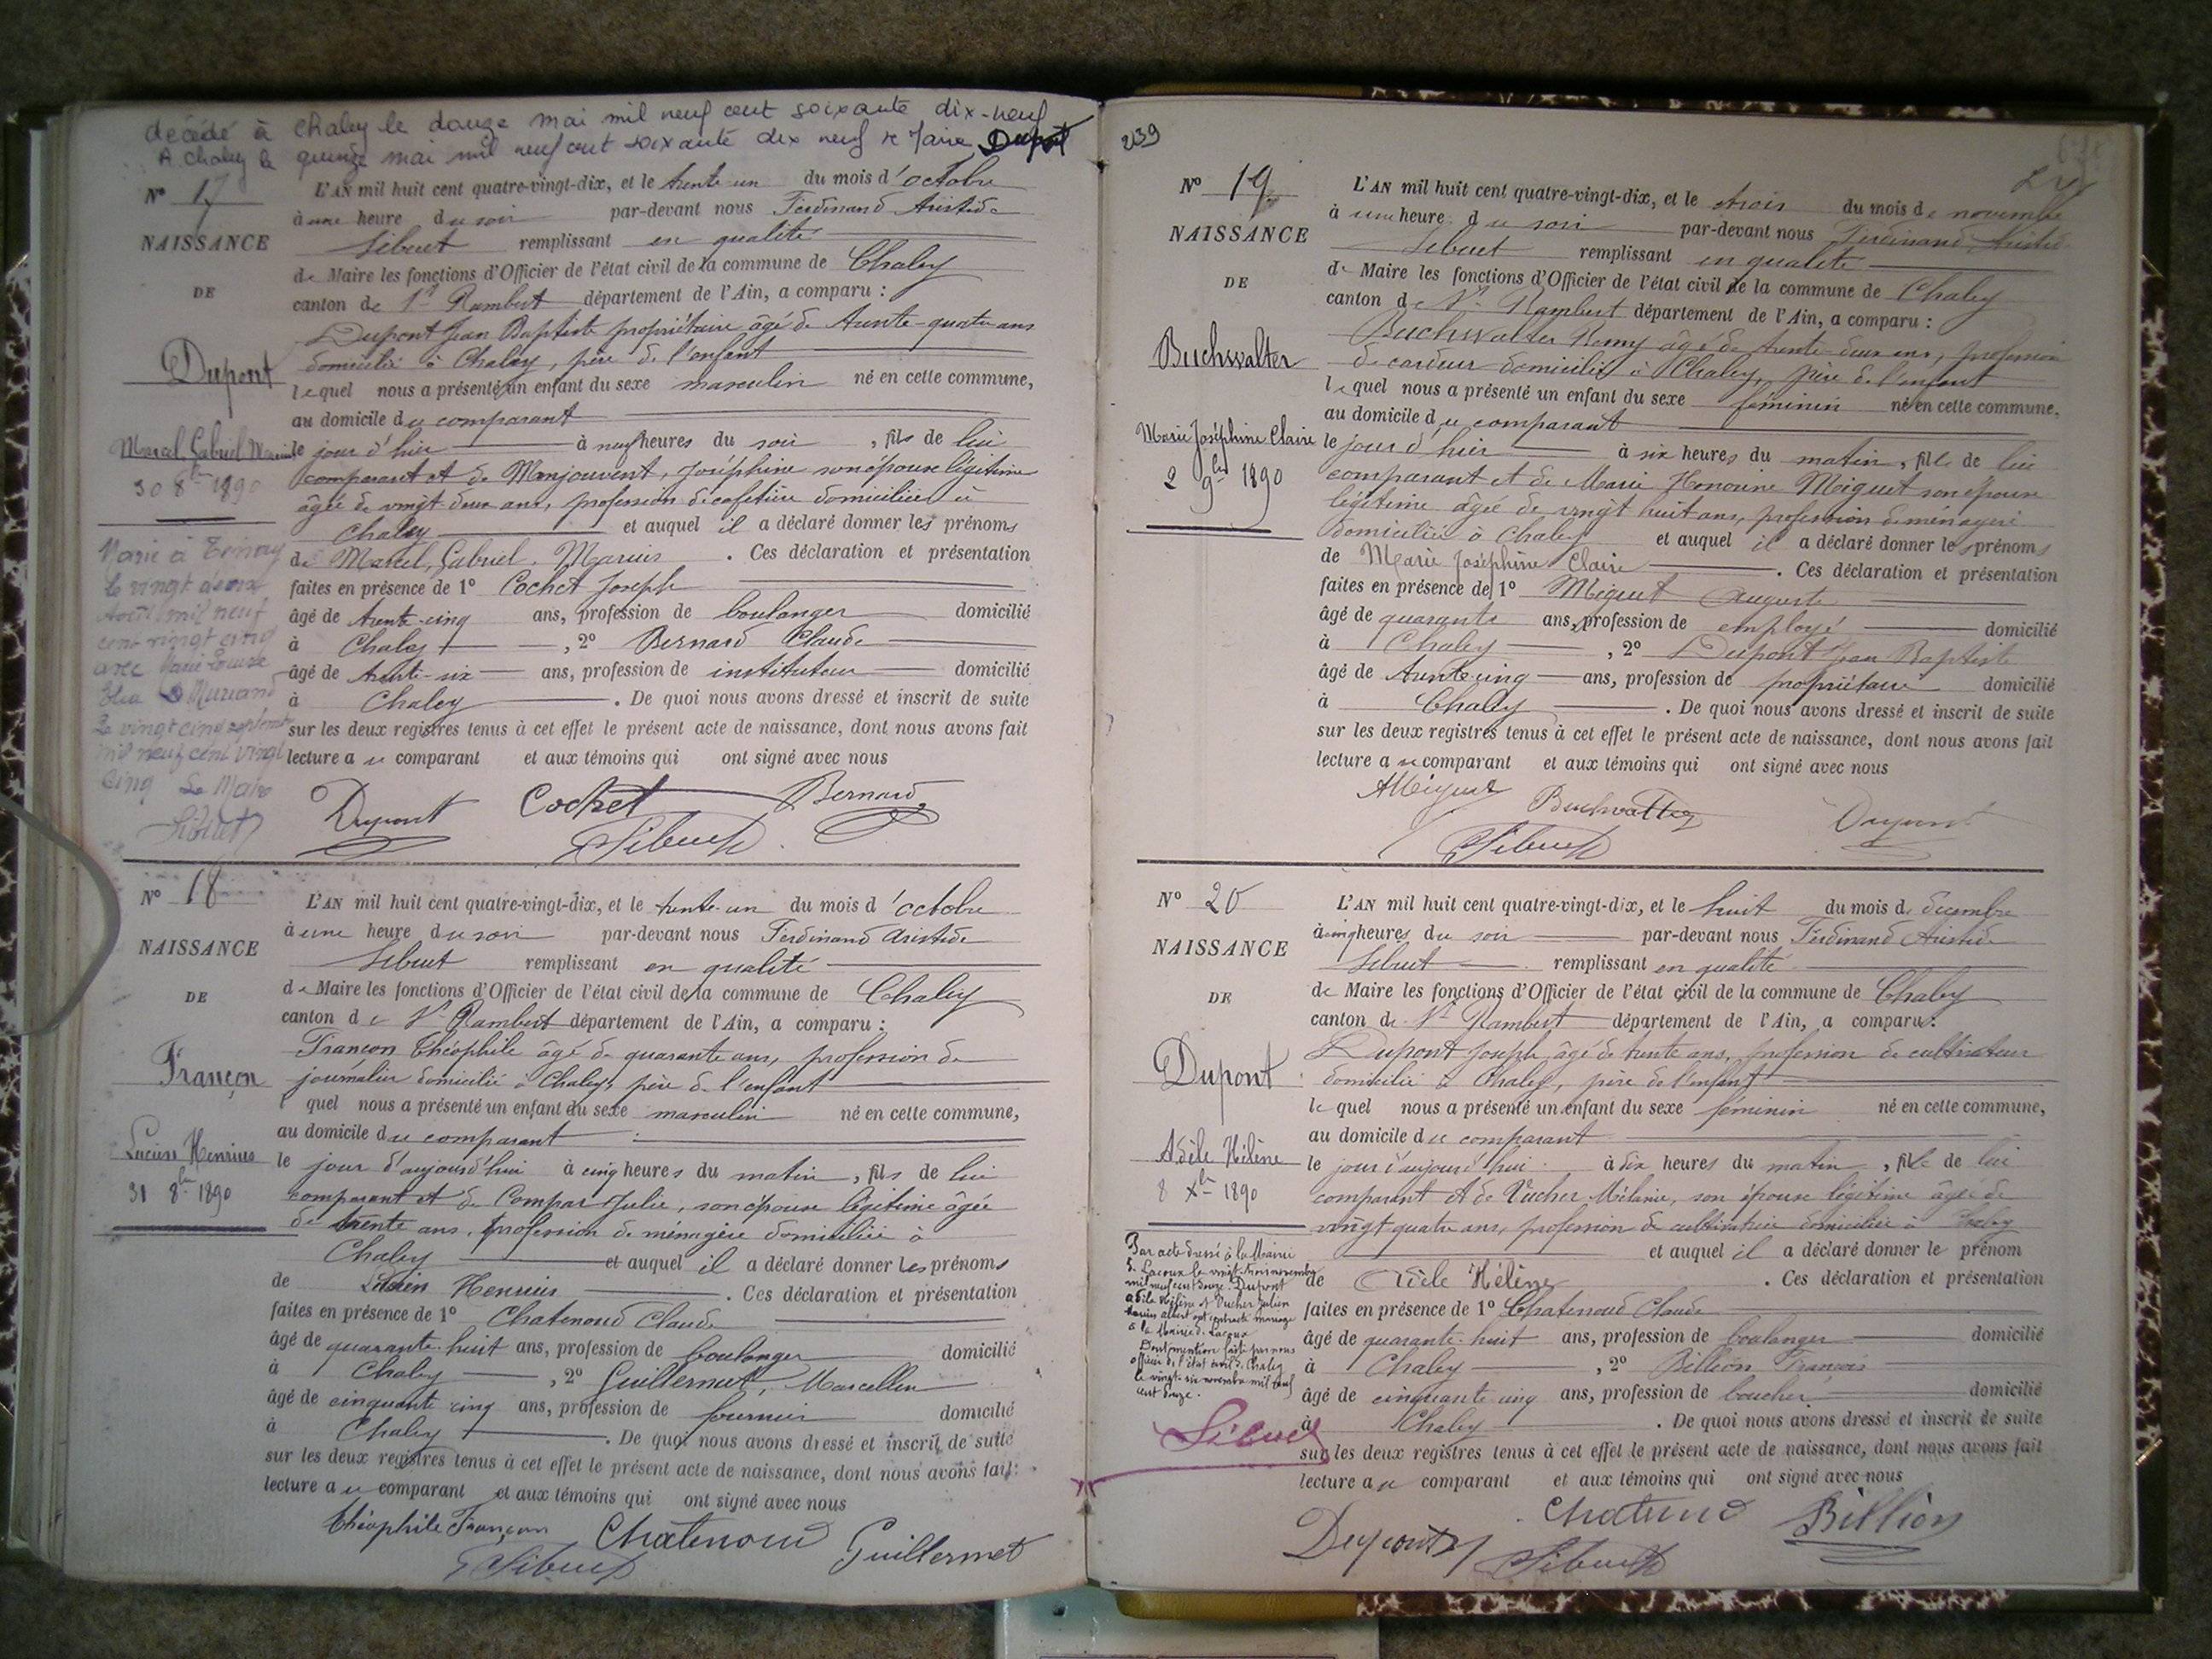 décédé à Chaley le douze mai mil neuf cent soixante dix-neuf
A Chaley le quinze mai mil neuf cent soixante dix neuf le Maire Dupont
N° 17
NAISSANCE
DE
Dupont
Marcel Gabriel Marius
30 8bre 1890
Marié à
le vingt deux
août mil neuf
cent vingt cinq
avec Marie Louise
Le vingt cinq septembre
mil neuf cent vingt
cinq Le Maire
Sibuet
L'AN mil huit cent quatre-vingt-dix, et le trente un du mois d'octobre
à une heure du soir par-devant nous Ferdinand Aristide
Sibuet remplissant en qualité
de Maire les fonctions d'Officier de l'état civil de la commune de Chaley
canton de St Rambert département de l'Ain, a comparu :
Dupont Jean Baptiste propriétaire âgé de trente-quatre ans
domicilié à Chaley, père de l'enfant
lequel nous a présenté un enfant du sexe masculin né en cette commune,
au domicile du comparant
le jour d'hier à neuf heures du soir, fils de lui
comparant et de Monjouvent, Joséphine son épouse légitime
âgée de vingt deux ans, profession de cafetière domiciliée à
Chaley et auquel il a déclaré donner les prénoms
de Marcel, Gabriel, Marius. Ces déclaration et présentation
faites en présence de 1° Cochet Joseph
âgé de trente-cinq ans, profession de boulanger domicilié
à Chaley, 2° Bernard Claude
âgé de trente-six ans, profession de instituteur domicilié
à Chaley. De quoi nous avons dressé et inscrit de suite
sur les deux registres tenus à cet effet le présent acte de naissance, dont nous avons fait
lecture au comparant et aux témoins qui ont signé avec nous
Dupont Cochet Bernard
Sibuet
N° 18
NAISSANCE
DE
Françon
Lucien Henrius
31 8bre 1890
L'AN mil huit cent quatre-vingt-dix, et le trente-un du mois d'octobre
à une heure du soir par-devant nous Ferdinand Aristide
Sibuet remplissant en qualité
de Maire les fonctions d'Officier de l'état civil de la commune de Chaley
canton de St Rambert département de l'Ain, a comparu :
Françon Théophile âgé de quarante ans, profession de
journalier domicilié à Chaley, père de l'enfant
quel nous a présenté un enfant du sexe masculin né en cette commune,
au domicile du comparant
le jour d'aujourd'hui à cinq heures du matin, fils de lui
comparant et de Compar Julie, son épouse légitime âgée
de trente ans, profession de ménagère domiciliée à
Chaley et auquel il a déclaré donner les prénoms
de Lucien Henrius. Ces déclaration et présentation
faites en présence de 1° Chatenoud Claude
âgé de quarante-huit ans, profession de boulanger domicilié
à Chaley, 2° Guillermet, Marcellin
âgé de cinquante cinq ans, profession de fournier domicilié
à Chaley. De quoi nous avons dressé et inscrit de suite
sur les deux registres tenus à cet effet le présent acte de naissance, dont nous avons fait
lecture au comparant et aux témoins qui ont signé avec nous
Théophile Françon Chatenoud Guillermet
Sibuet
239
N° 19
NAISSANCE
DE
Buchwalter
Marie Joséphine Claire
2 9bre 1890
L'AN mil huit cent quatre-vingt-dix, et le trois du mois de novembre
à une heure du soir par-devant nous Ferdinand Aristide
Sibuet remplissant en qualité
de Maire les fonctions d'Officier de l'état civil de la commune de Chaley
canton de St Rambert département de l'Ain, a comparu :
Buchwalter Remy âgé de trente-deux ans, profession
de cardeur domicilié à Chaley, père de l'enfant
lequel nous a présenté un enfant du sexe féminin né en cette commune,
au domicile du comparant
le jour d'hier à six heures du matin, fille de lui
comparant et de Marie Honorine Miguet son épouse
légitime âgée de vingt huit ans, profession de ménagère
domiciliée à Chaley et auquel il a déclaré donner les prénoms
de Marie Joséphine Claire. Ces déclaration et présentation
faites en présence de 1° Miguet Auguste
âgé de quarante ans, profession de employé domicilié
à Chaley, 2° Dupont Jean Baptiste
âgé de trente-cinq ans, profession de propriétaire domicilié
à Chaley. De quoi nous avons dressé et inscrit de suite
sur les deux registres tenus à cet effet le présent acte de naissance, dont nous avons fait
lecture au comparant et aux témoins qui ont signé avec nous
AMiguet Buchwalter Dupont
Sibuet
N° 20
NAISSANCE
DE
Dupont
Adèle Hélène
8 Xbre 1890
Par acte dressé à la Mairie
de Lacoux le vingt-trois novembre
mil neuf cent douze, Dupont
Adèle Hélène et Vucher Julien
Marius Albert ont contracté mariage
à la Mairie de Lacoux
Dont mention faite par nous
officier de l'état civil de Chaley
le vingt-six novembre mil neuf
cent douze.
Sibuet
L'AN mil huit cent quatre-vingt-dix, et le huit du mois de décembre
à cinq heures du soir par-devant nous Ferdinand Aristide
Sibuet remplissant en qualité
de Maire les fonctions d'Officier de l'état civil de la commune de Chaley
canton de St Rambert département de l'Ain, a comparu :
Dupont Joseph âgé de trente ans, profession de cultivateur
domicilié à Chaley, père de l'enfant
lequel nous a présenté un enfant du sexe féminin né en cette commune,
au domicile du comparant
le jour d'aujourd'hui à dix heures du matin, fille de lui
comparant et de Vucher Mélanie, son épouse légitime âgée de
vingt quatre ans, profession de cultivatrice domiciliée à Chaley
et auquel il a déclaré donner le prénom
de Adèle Hélène. Ces déclaration et présentation
faites en présence de 1° Chatenoud Claude
âgé de quarante-huit ans, profession de boulanger domicilié
à Chaley, 2° Billion François
âgé de cinquante cinq ans, profession de boucher domicilié
à Chaley. De quoi nous avons dressé et inscrit de suite
sur les deux registres tenus à cet effet le présent acte de naissance, dont nous avons fait
lecture au comparant et aux témoins qui ont signé avec nous
Dupont Chatenoud Billion
Sibuet